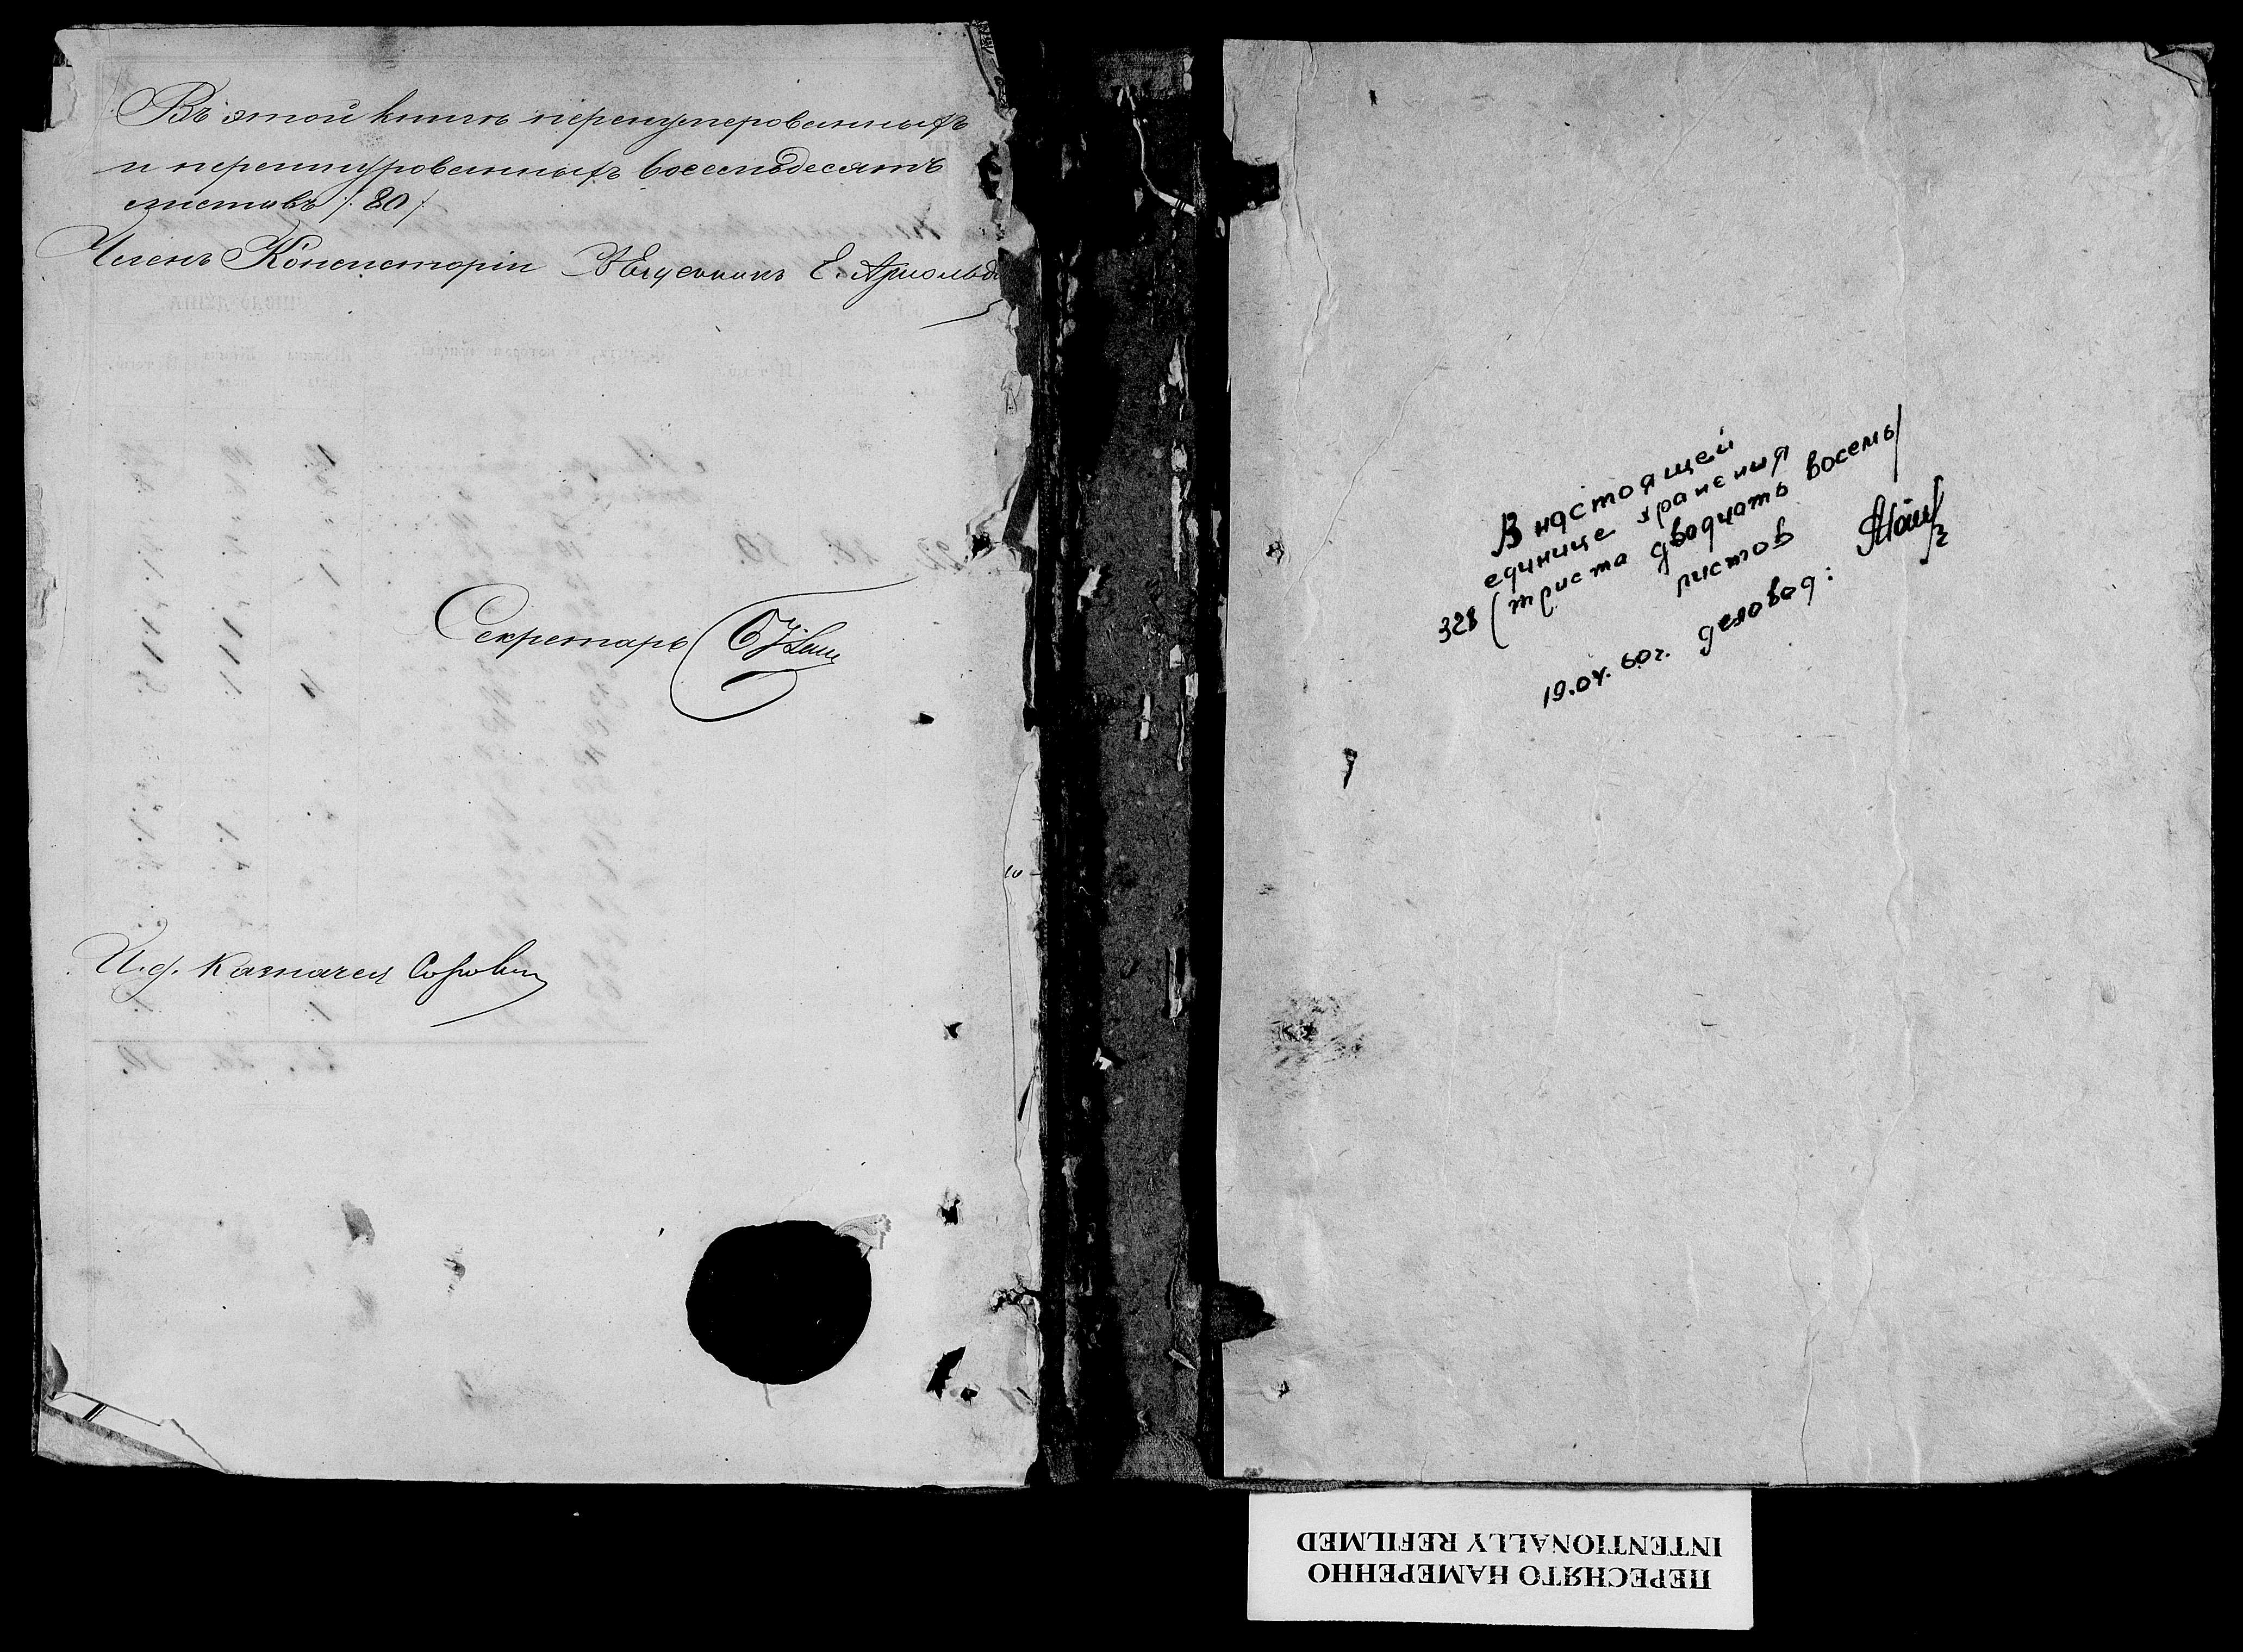 Въ этой книгѣ перенумерованныхъ
и перешнурованныхъ восемьдесятъ
листовъ /:80/
Членъ Консисторіи Е. Арнольдъ
Секретарь
И.д. Казначея
В настоящей
единице хранения
328 (триста двадцать восемь)
листов
19.04.60г. деловод:
ПЕРЕСНЯТО НАМЕРЕННО
INTENTIONALLY REFILMED